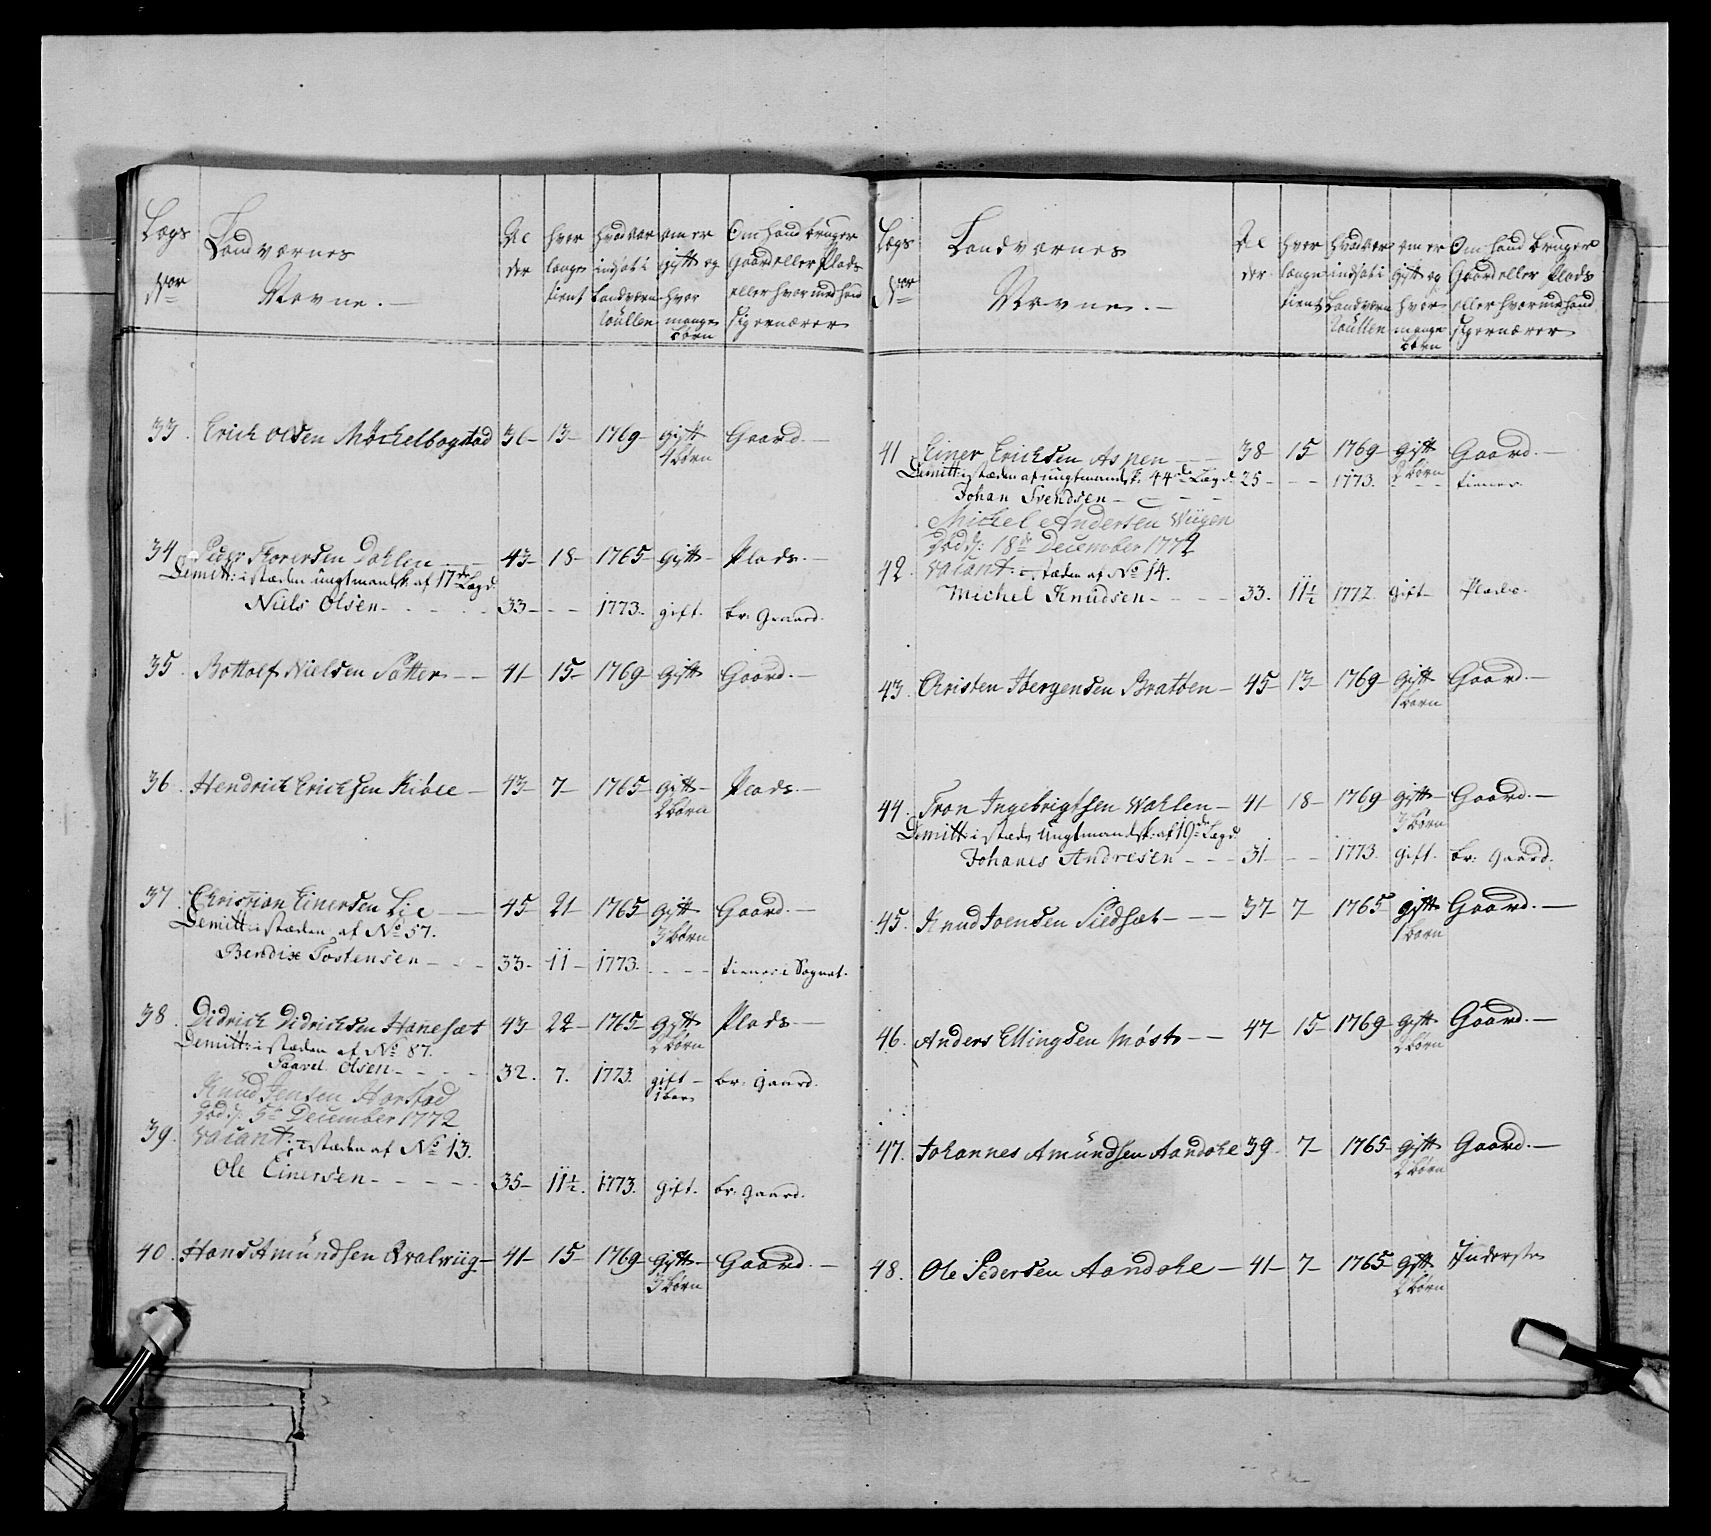 Lægs Nor
Landværnes Navne.
Al der
hvor længe tient
hvad aar indsat i Landværn Roullen
om er gift og hvor mange børn
Om hand bruger Gaard eller Plads eller hvormed hand sig ernærer
33. Erich Olsen Møchelbogstad 36- 13- 1769- gift 4 børn Gaard.
34. Peder Thorersen Dahlen 43- 18- 1765- gift- Plads.
Demitt: i stæden ungtmandsk: af 17de Lægd.
Niels Olsen 33- - 1773. gift. br: Gaard.
35. Bottolf Nielsen Sætter 41- 15- 1769 gift Gaard.
36. Hendrich Erichsen Kiøle 43- 7- 1765 gift- 2 børn Plads.
37. Christian Einersen Lie 45- 21- 1765 gift 3 børn Gaard.
Demitt: i stæden af No 57.
Bendix Tostensen 33- 11- 1773. tiener i Sognet.
38. Didrich Didrichsen Hanesæt 43- 22- 1765- gift 2 børn Plads
Demitt: i stæden af No 87.
Paavel Olsen 32. 7. 1773. gift 1 barn br: gaard.
Knud Jensen Harstad
død d: 5te December 1772
39. vacant: i stæden af No 13.
Ole Einersen 35- 11½. 1773. gift. br: gaard.
40. Hans Amundsen Qvalviig 41- 15- 1769- gift- 3 børn Gaard.
Lægs Nor
Landværnes Navne.
Al der
hvor længe tient
hvad aar indsat i Landværn Roullen
om er gift og hvor mange børn
Om hand bruger Gaard eller Plads eller hvormed hand sig ernærer
41. Einer Erichsen Aspen 38- 15- 1769- gift 2 børn Gaard.
Demitt: i stæden af ungtmandsk: 44de Lægd. 25- - 1773. tiener.
Johan Svendsen
Michel Andersen Wiigen
død d: 18de December 1772
42. vacant: i stæden af No 14.
Michel Knudsen 33. 11½ 1772. gift- Plads.
43. Christen Jørgensen Bratøen 45- 13- 1769- gift 1 børn Gaard.
44. Tron Ingebrigtsen Wahlen 41- 18- 1769 gift- 3 børn Gaard.
Demitt: i stæden Ungtmandsk: af 19de Lægd
Johanes Andresen 31- - 1773. gift. br: gaard.
45. Knud Joensen Siedsæt 37- 7- 1765 gift 1 børn Gaard.
46. Anders Ellingsen Møst 47- 15- 1769- gift- 2 børn Gaard.
47. Johannes Amundsen Aandahl 39- 7- 1765- gift 2 børn Gaard.
48. Ole Pedersen Aandahl 41- 7- 1765 gift 2 børn Inderste